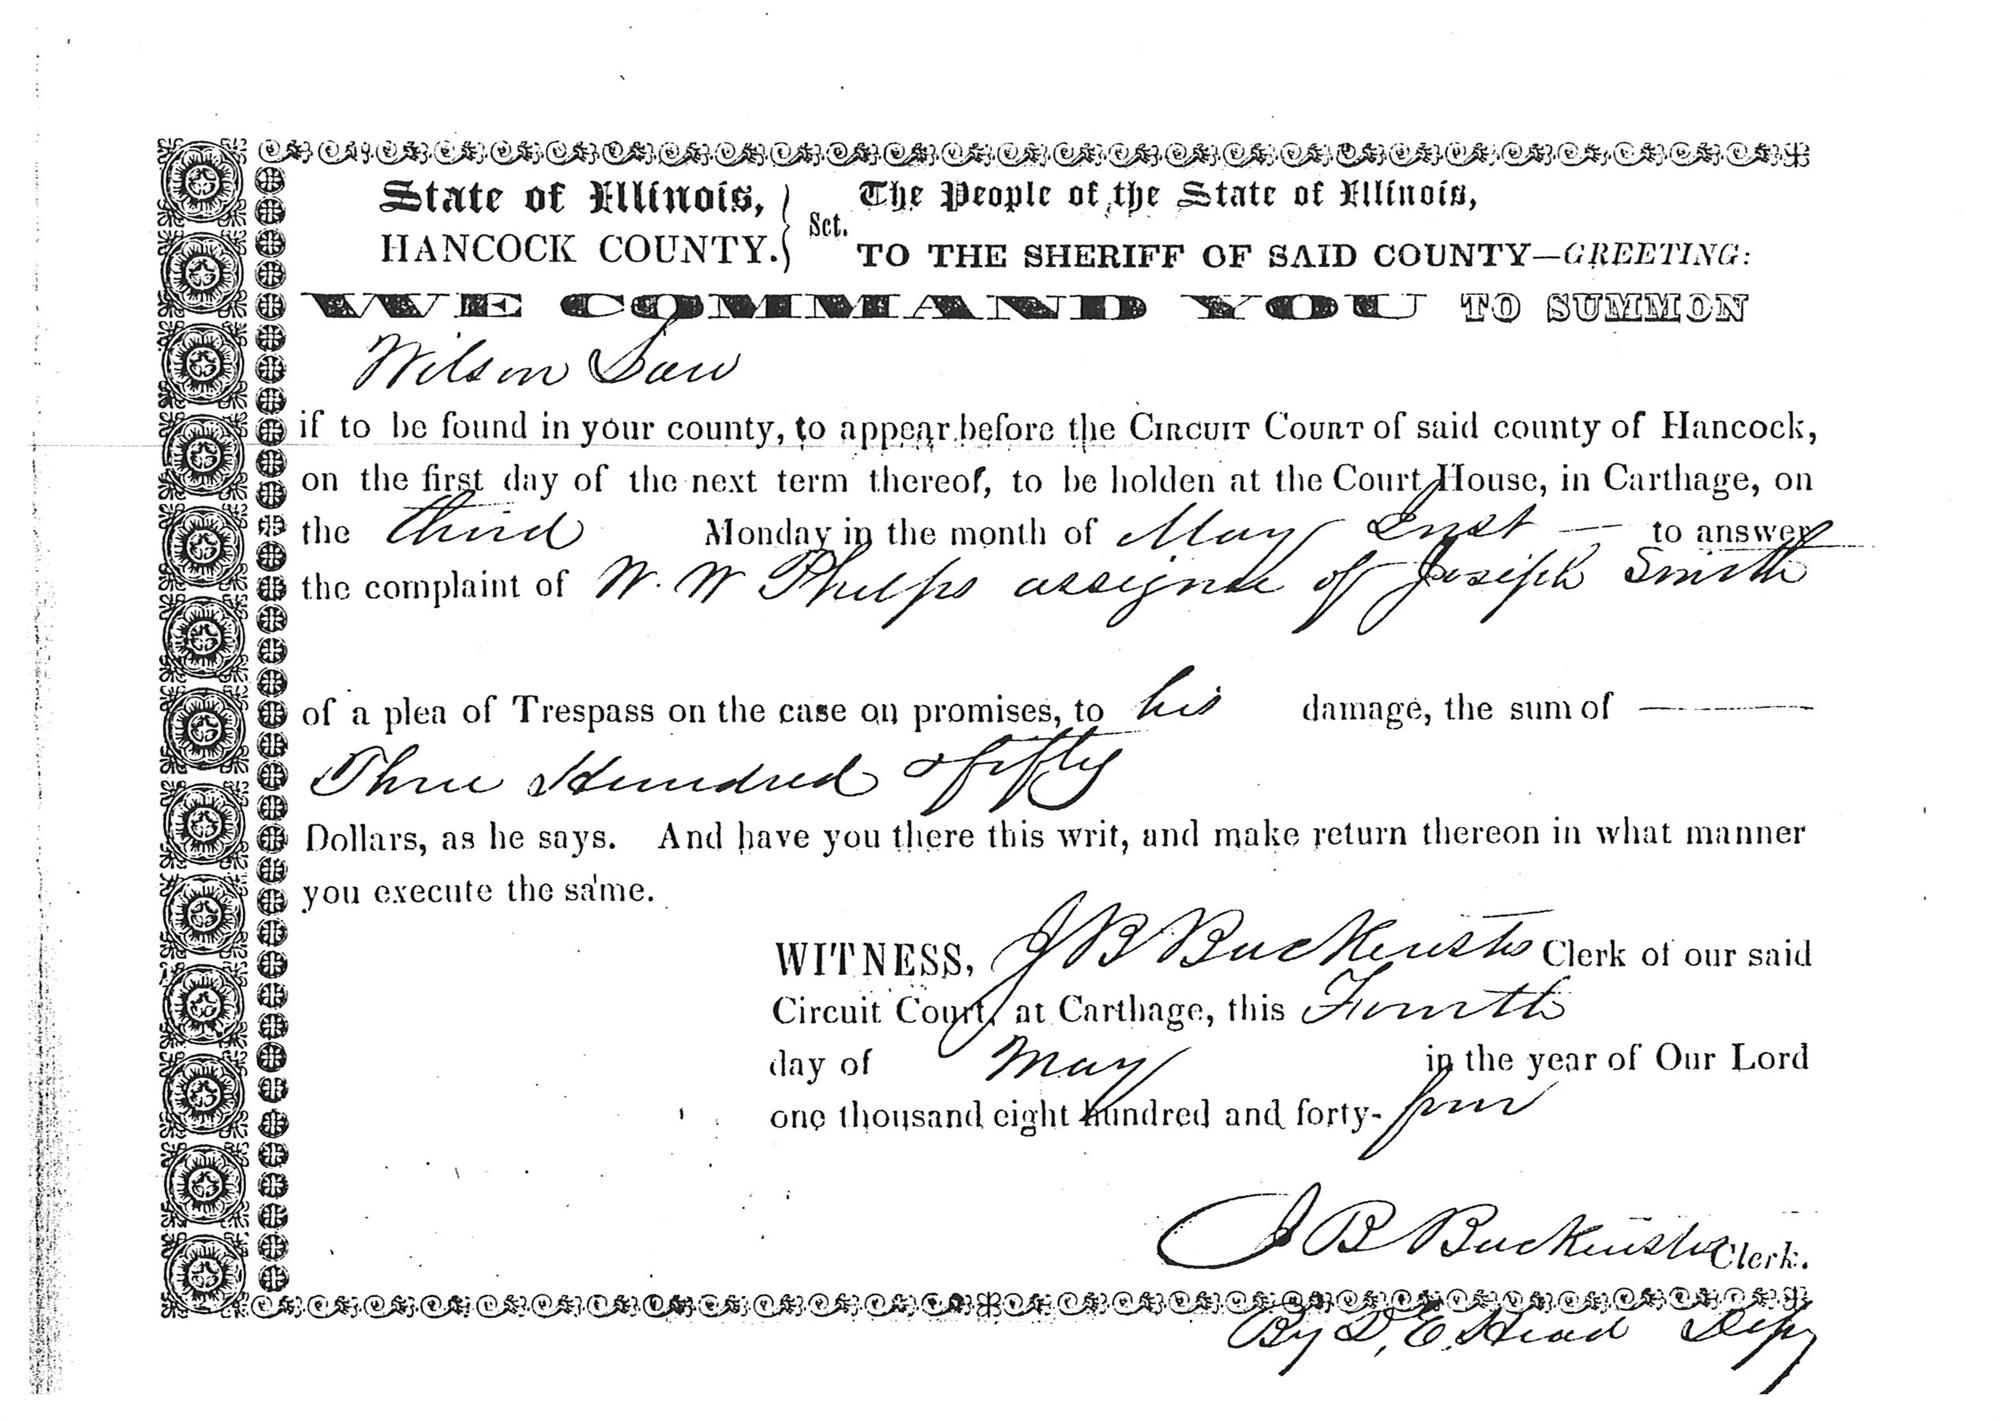 State of Illinois, } Sct. The People of the State of Illinois,
HANCOCK COUNTY. } TO THE SHERIFF OF SAID COUNTY—GREETING:
WE COMMAND YOU TO SUMMON
Wilson Law
if to be found in your county, to appear before the CIRCUIT COURT of said county of Hancock,
on the first day of the next term thereof, to be holden at the Court House, in Carthage, on
the third Monday in the month of May Inst — to answer
the complaint of W. W Phelps assignee of Joseph Smith
of a plea of Trespass on the case on promises, to his damage, the sum of —
Three Hundred & fifty
Dollars, as he says. And have you there this writ, and make return thereon in what manner
you execute the same.
WITNESS, J B Backenstos Clerk of our said
Circuit Court, at Carthage, this Fourth
day of May in the year of Our Lord
one thousand eight hundred and forty-four
J B Backenstos Clerk.
By D. E. Head Depy